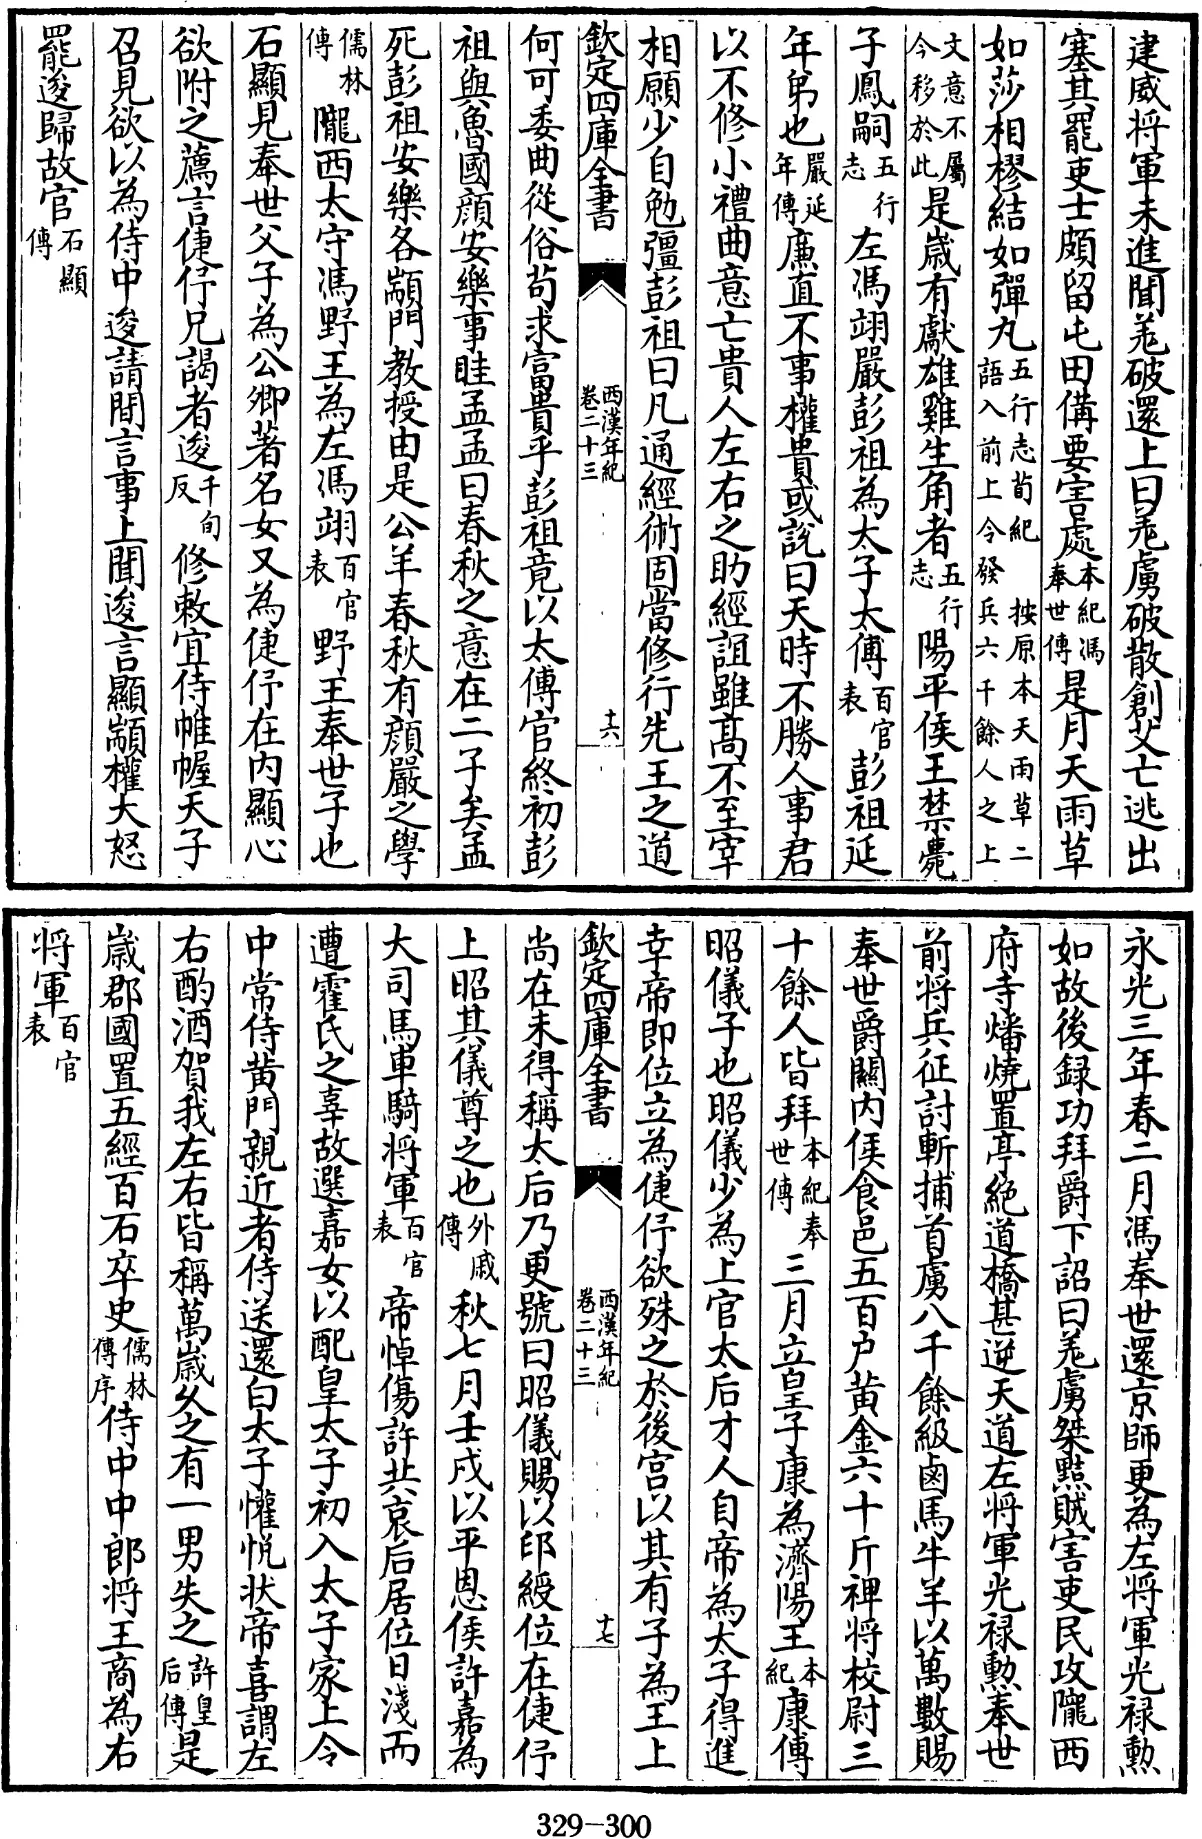 建威将軍未進聞羌破還上曰羌虜破散創艾亡逃出
塞其罷吏士頗留屯田備要害處本紀馮奉世傳是月天雨草
如莎相樛結如彈丸五行志荀紀 按原本天雨草二語入前上今發兵六千餘人之上
文意不屬今移於此是歳有獻雄雞生角者五行志陽平侯王禁薨
子鳳嗣五行志左馮翊嚴彭祖為太子太傅百官表彭祖延
年弟也嚴延年傳廉直不事權貴或說曰天時不勝人事君
以不修小禮曲意亡貴人左右之助經誼雖高不至宰
相願少自勉彊彭祖曰凡通經術固當修行先王之道
欽定四庫全書 西漢年紀卷二十三 十六
何可委曲從俗茍求富貴乎彭祖竟以太傅官終初彭
祖與魯國顔安樂事眭孟孟曰春秋之意在二子矣孟
死彭祖安樂各顓門教授由是公羊春秋有顔嚴之學
儒林傳隴西太守馮野王為左馮翊百官表野王奉世子也
石顯見奉世父子為公卿著名女又為倢伃在内顯心
欲附之薦言倢伃兄謁者逡千旬反修敕宜侍帷幄天子
召見欲以為侍中逡請閒言事上聞逡言顯顓權大怒
罷逡歸故官石顯傳
永光三年春二月馮奉世還京師更為左将軍光禄勲
如故後録功拜爵下詔曰羌虜桀黠賊害吏民攻隴西
府寺燔燒置亭絶道橋甚逆天道左将軍光禄勲奉世
前将兵征討斬捕首虜八千餘級鹵馬牛羊以萬數賜
奉世爵關内侯食邑五百户黄金六十斤裨将校尉三
十餘人皆拜本紀奉世傳三月立皇子康為濟陽王本紀康傅
昭儀子也昭儀少為上官太后才人自帝為太子得進
幸帝即位立為倢伃欲殊之於後宫以其有子為王上
欽定四庫全書 西漢年紀卷二十三 十七
尚在未得稱太后乃更號曰昭儀賜以印綬位在倢伃
上昭其儀尊之也外戚傳秋七月壬戍以平恩侯許嘉為
大司馬車騎将軍百官表帝悼傷許共哀后居位日淺而
遭霍氏之辜故選嘉女以配皇太子初入太子家上令
中常侍黄門親近者侍送還白太子懽悦狀帝喜謂左
右酌酒賀我左右皆稱萬嵗久之有一男失之許皇后傳是
嵗郡國置五經百石卒史儒林傳序侍中中郎将王商為右
将軍百官表
329-300